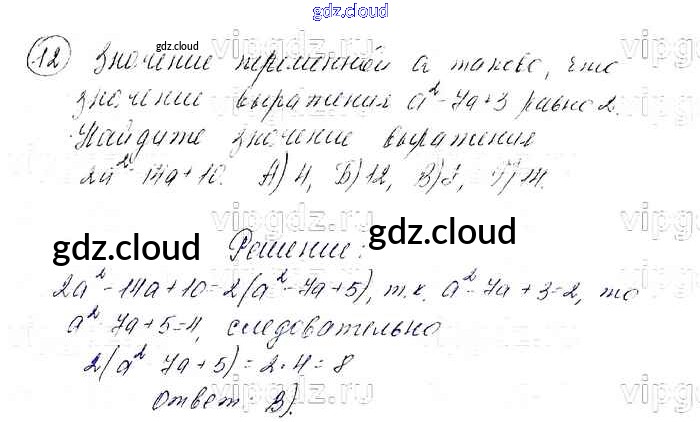 gdz.cloud
12 Значение переменной a таково, что
gdz.cloud
значение выражения a² - 7a + 3 равно 2.
Найдите значение выражения
2a² - 14a + 10. А) 4, Б) 12, В) 8, Г) 14.
gdz.cloud Решение: gdz.cloud
2a² - 14a + 10 = 2(a² - 7a + 5), т.к. a² - 7a + 3 = 2, то
a² 7a + 5 = 4, следовательно
2(a² 7a + 5) = 2 · 4 = 8
Ответ: В).
vipgdz.ru